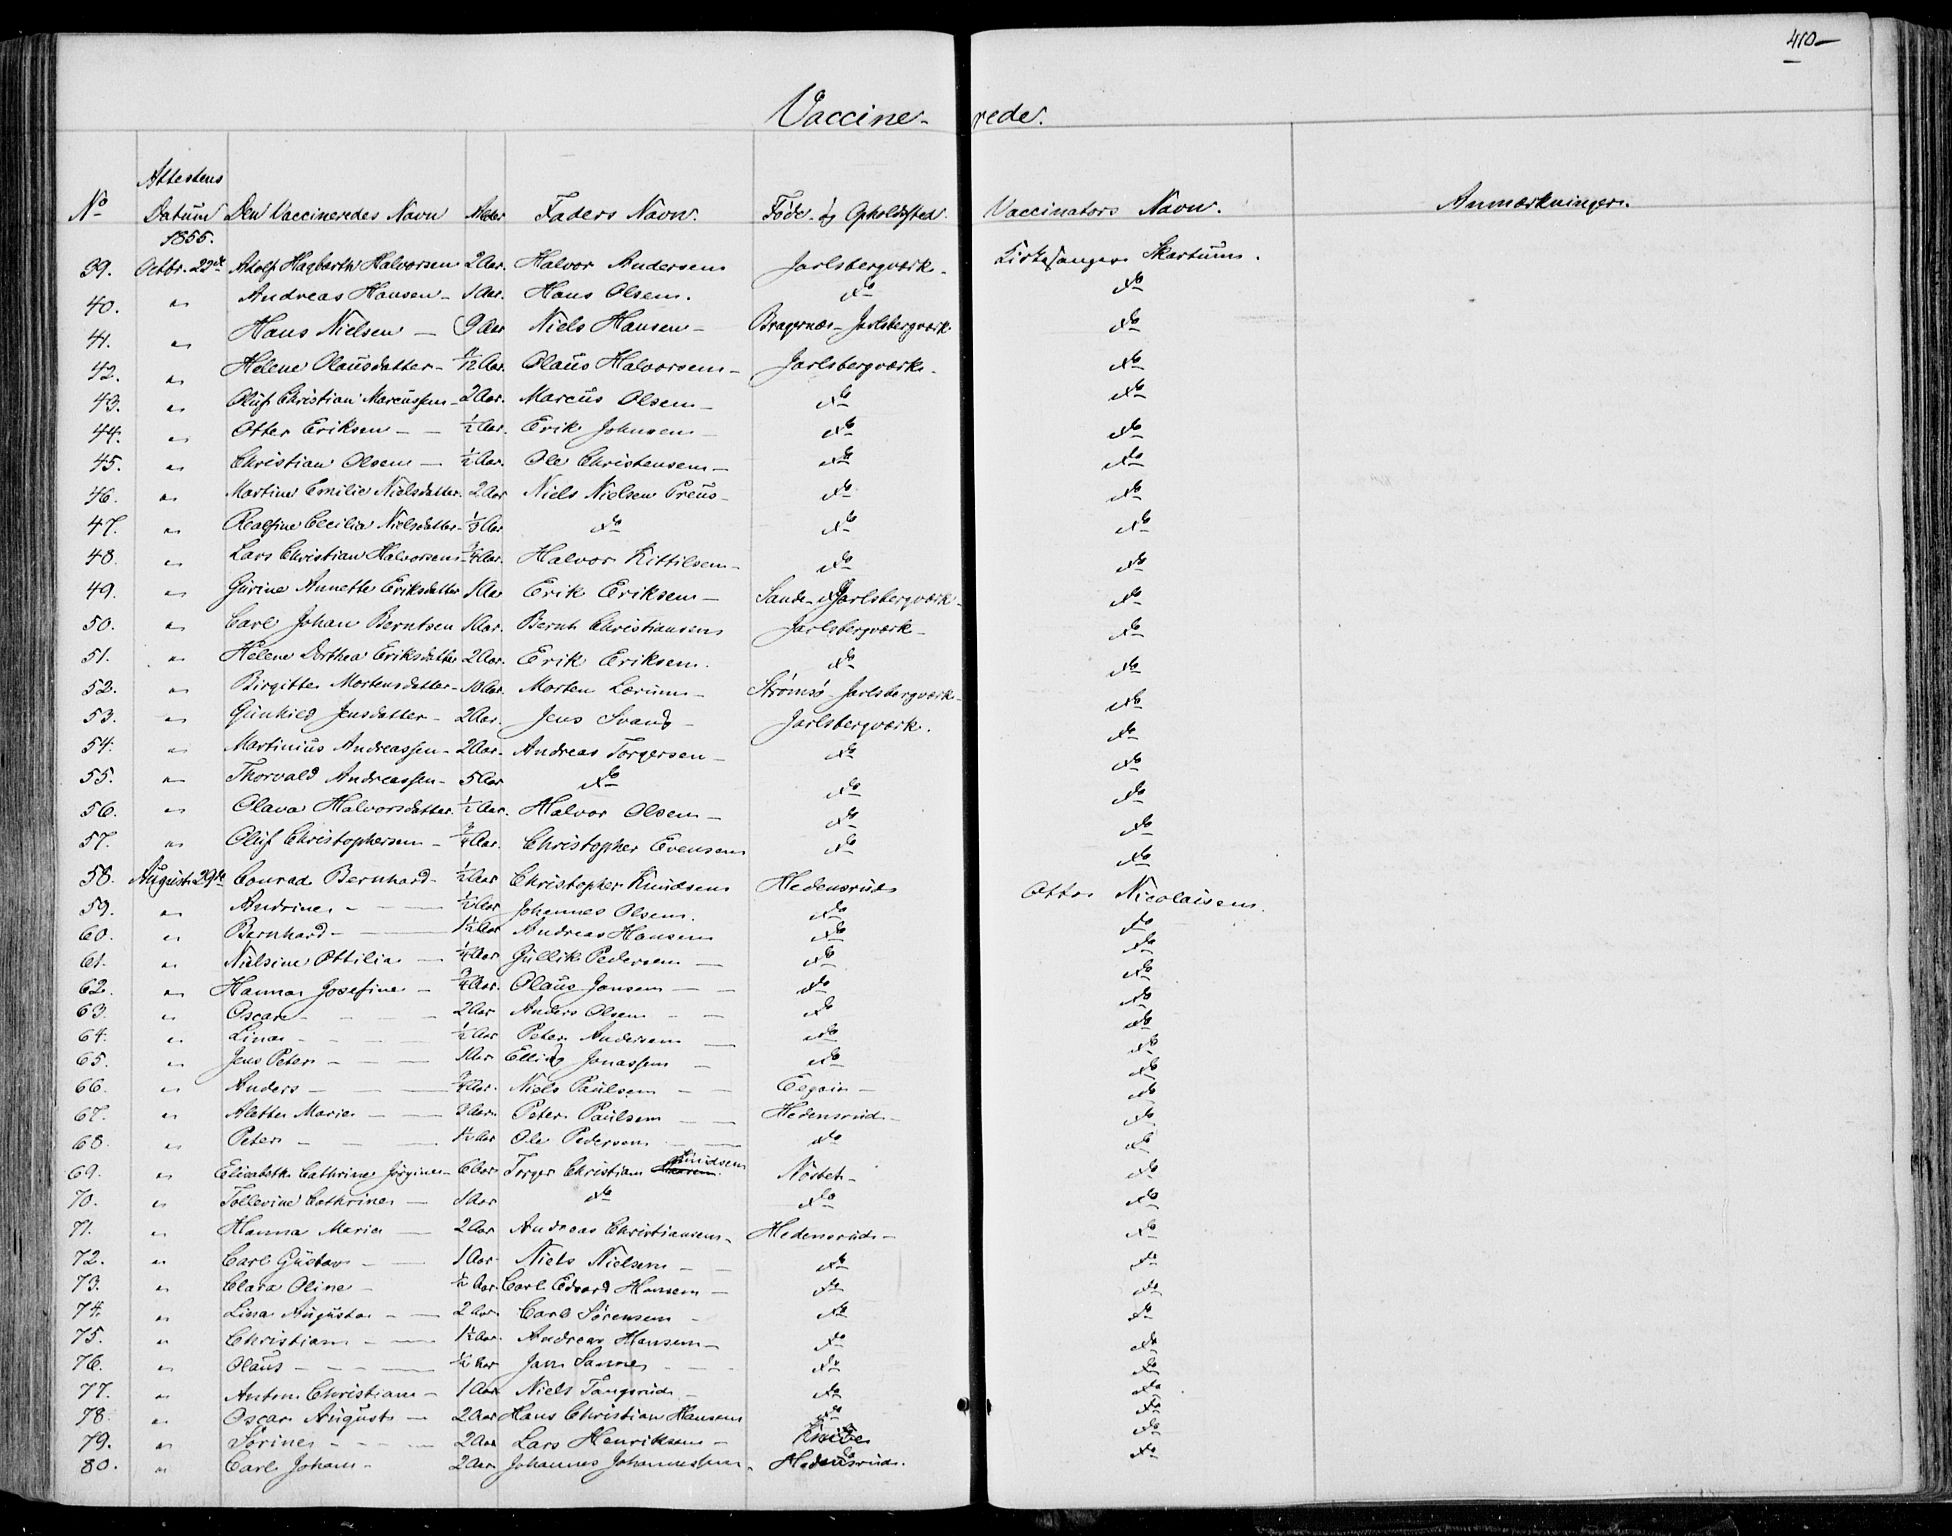 410
Vaccine- rede.
No Attestens Datum Den Vaccineredes Navn Alder Faders Navn. Føde- og Opholdssted. Vaccinators Navn. Anmærkninger.
1855.
39. Octbr. 22de Adolf Hagbarth Halvorsen 2 Aar. Halvor Andersen Jarlsbergværk. Kirkesanger Skartum.
40. " Andreas Hansen - 1 Aar. Hans Olsen. do do
41. " Hans Nielsen - 9 Aar Niels Hansen - Bragernæs - Jarlsbergværk do
42. " Helene Olausdatter - 11/12 Aar. Olaus Halvorsen - Jarlsbergværk. do
43. " Oluf Christian Marcussen - 2 Aar. Marcus Olsen - do do
44. " Otter Eriksen - - 1/2 Aar. Erik Johnsen - do do
45. " Christian Olsen - 1/2 Aar. Ole Christensen - do do
46. " Martine Emilie Nielsdatter. 2 Aar Niels Nielsen Preus - do do
47. " Cecilia Nielsdatter - 1/3 Aar do do do
48. " Lars Christian Halvorsen - 3/4 Aar. Halvor Kittilsen - do do
49. " Gurine Annette Eriksdatter 1 Aar Erik Eriksen - Sande - Jarlsbergværk - do
50. " Carl Johan Berntsen 1 Aar. Bernt Christiansen Jarlsbergværk - do
51. " Helene Dorthea Eriksdatter 2 Aar. Erik Eriksen. do do
52. " Birgitte Mortensdatter - 10 Aar. Morten Lærum - Strømsø - Jarlsbergværk - do
53. " Gunhild Jensdatter - 2 Aar. Jens Svang - Jarlsbergværk. do
54. " Martinius Andreassen - 2 Aar. Andreas Torgersen - do do
55. " Thorvald Andreassen - 5 Aar do do do
56. " Olava Halvorsdatter. 1/2 Aar. Halvor Olsen - do do
57. " Oluf Christophersen - 3/4 Aar. Christopher Evensen do do
58. August 29de Conrad Bernhard - 1/2 Aar Christopher Knudsen Hedensrud Otto Nicolaisen.
59. " Andrine - - 1/2 Aar Johannes Olsen. do do
60. " Bernhard - - 1 1/2 Aar Andreas Hansen do do
61. " Nielsine Ottilia - 1/4 Aar Gullik Pedersen - do do
62. " Hanna Josefine - 3/4 Aar. Olaus Jansen - - do do
63. " Oscar - - - 2 Aar Anders Olsen - - do do
64. " Lina - - - 1/2 Aar Peter Andersen - do do
65. " Jens Peter - - 1 Aar Elling Jonassen - do do
66. " Anders - - 3/4 Aar. Niels Paulsen - - do
67. " Alette Marie - - 3 Aar. Peter Paulsen - - Hedensrud - do
68. " Peter - - 1 1/2 Aar Ole Pedersen - - do do
69. " Elisabeth Cathrine Jørgine - 6 Aar Torger Christian Knudsen - do
70. " Tollevine Cathrine - 1 Aar do do do
71. " Hanna Marie - 2 Aar Andreas Christiansen - Hedensrud - do
72. " Carl Gustav - - 1 Aar Niels Nielsen - - do do
73. " Clara Oline - 1/2 Aar. Carl Edvard Hansen - do do
74. " Lina Augusta - - 2 Aar Carl Sørensen - do do
75. " Christian - - 1 1/2 Aar. Andreas Hansen - do do
76. " Olaus - - - 1/2 Aar Jan Sanne - do do
77. " Anton Christian - 1 Aar Niels Tangerud - do do
78. " Oscar August - 2 Aar Hans Christian Hansen do do
79. " Sørine - - - 2 Aar Lars Henriksen - do
80. " Carl Johan - 2 Aar Johannes Johannessen - Hedensrud. do